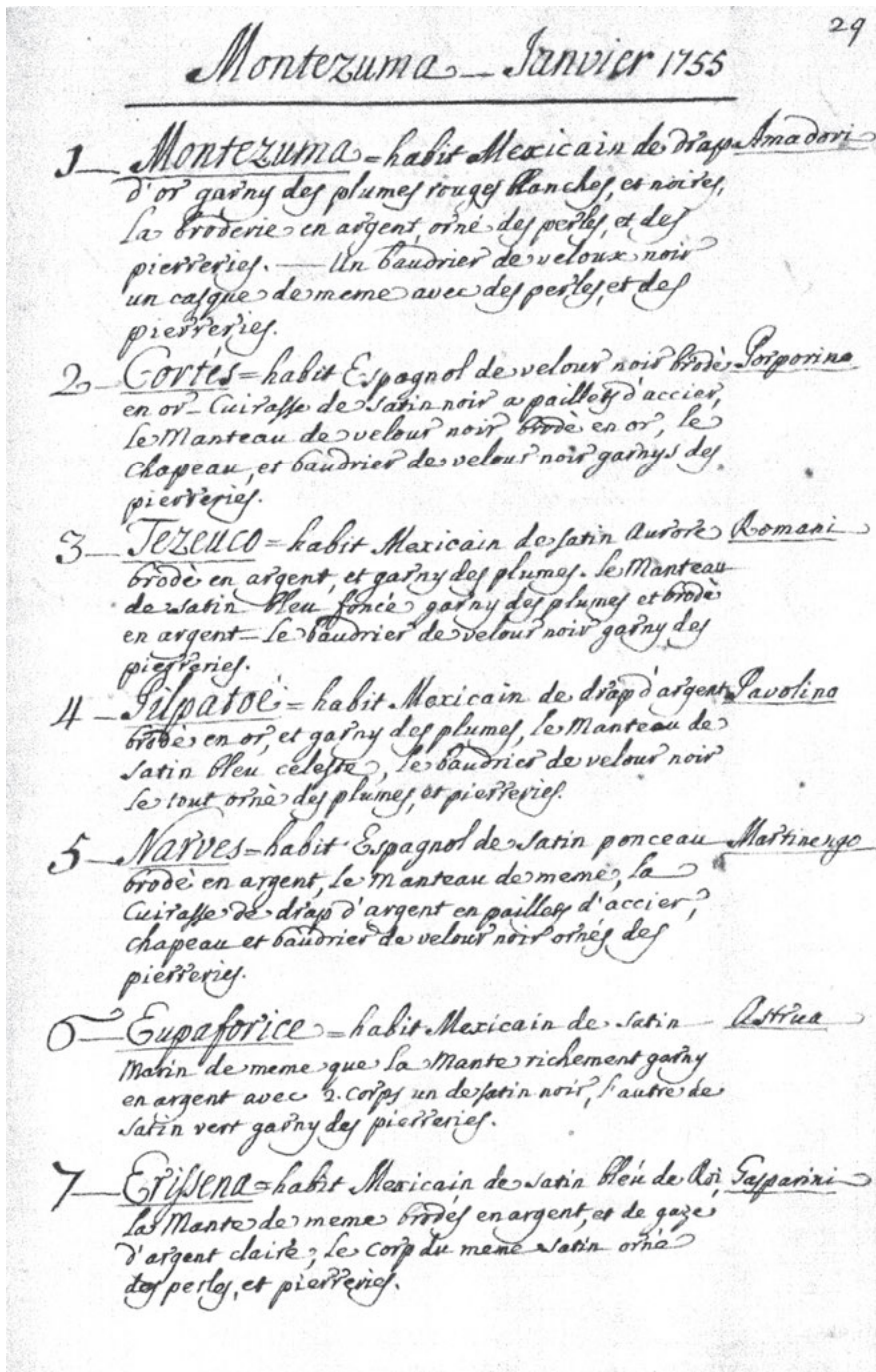 29
Montezuma — Janvier 1755
1 — Montezuma = habit Mexicain de drap Amadori
d'or garny des plumes rouges blanches, et noires,
la broderie en argent, orné des perles, et des
pierreries. — Un baudrier de veloux noir
un casque de meme avec des perles, et des
pierreries.
2 — Cortés = habit Espagnol de velour noir brodè Porporino
en or — Cuirasse de Satin noir a paillets d'accier,
le Manteau de velour noir brodè en or, le
chapeau, et baudrier de velour noir garnys des
pierreries.
3 — Tezeuco = habit Mexicain de satin Aurore Romani
brodè en argent, et garny des plumes. le Manteau
de satin bleu foncé garny des plumes et brodè
en argent — le baudrier de velour noir garny des
pierreries.
4 — Pilpatoé = habit Mexicain de drap d'argent Pavolino
brodè en or, et garny des plumes, le Manteau de
Satin bleu celeste, le baudrier de velour noir
le tout ornè des plumes, et pierreries.
5 — Narves = habit Espagnol de satin ponceau Martinengo
brodè en argent, le Manteau de meme, la
Cuirasse de drap d'argent en paillets d'accier,
chapeau et baudrier de velour noir ornés des
pierreries.
6 — Eupaforice = habit Mexicain de satin — Astrua
Marin de meme que la Mante richement garny
en argent avec 2. Corps un de satin noir, l'autre de
satin vert garny des pierreries.
7 — Erissena = habit Mexicain de satin bléu de Roi Gasparini
la Mante de meme brodés en argent, et de gaze
d'argent claire, le Corp du meme satin orné
des perles, et pierreries.